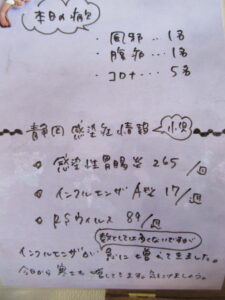 本日の病欠
・風邪‥1名
・腹痛‥1名
・コロナ…5名
静岡感染症情報 小児
感染性胃腸炎 265/週
インフルエンザA型 17/週
RSウイルス 89/週
数としては多くないですが
インフルエンザが 急に 増えてきました。
今日から 寒さも 増してきます。気をつけましょう。